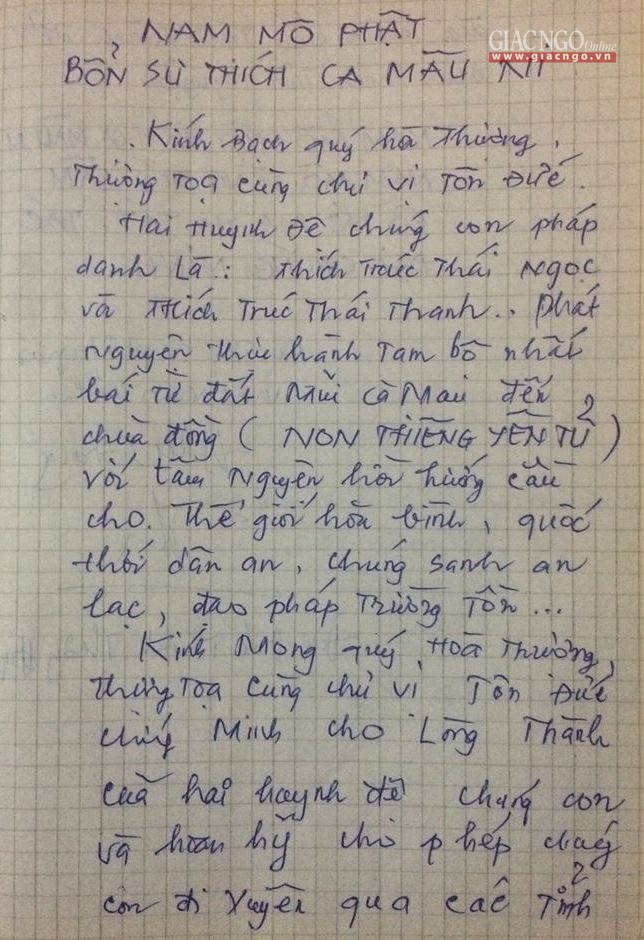 NAM MÔ PHẬT
GIACNGO Online
www.giacngo.vn
BỔN SƯ THÍCH CA MÂU NI
. Kính Bạch quý hòa Thường,
Thường Tọa cùng chư vị Tôn Đức.
Hai Huynh Đệ chúng con pháp
danh Là: Thích Trúc Thái Ngọc
và Thích Trúc Thái Thanh.. phát
Nguyện thực hành Tam bộ nhất
bái Từ đất Mũi Cà Mau đến
chùa đồng ( NON THIÊNG YÊN TỬ )
với tâm Nguyện hồi hướng cầu
cho. Thế giới hòa bình, quốc
thới dân an, chúng sanh an
lạc, đạo pháp Trường Tồn...
Kính Mong quý Hoà Thường,
Thường Tọa Cùng chư vị Tôn Đức
chứng Minh cho Lòng Thành
của hai huynh đệ chúng con
và hoan hỷ cho phép chúng
con đi Xuyên qua các Tỉnh